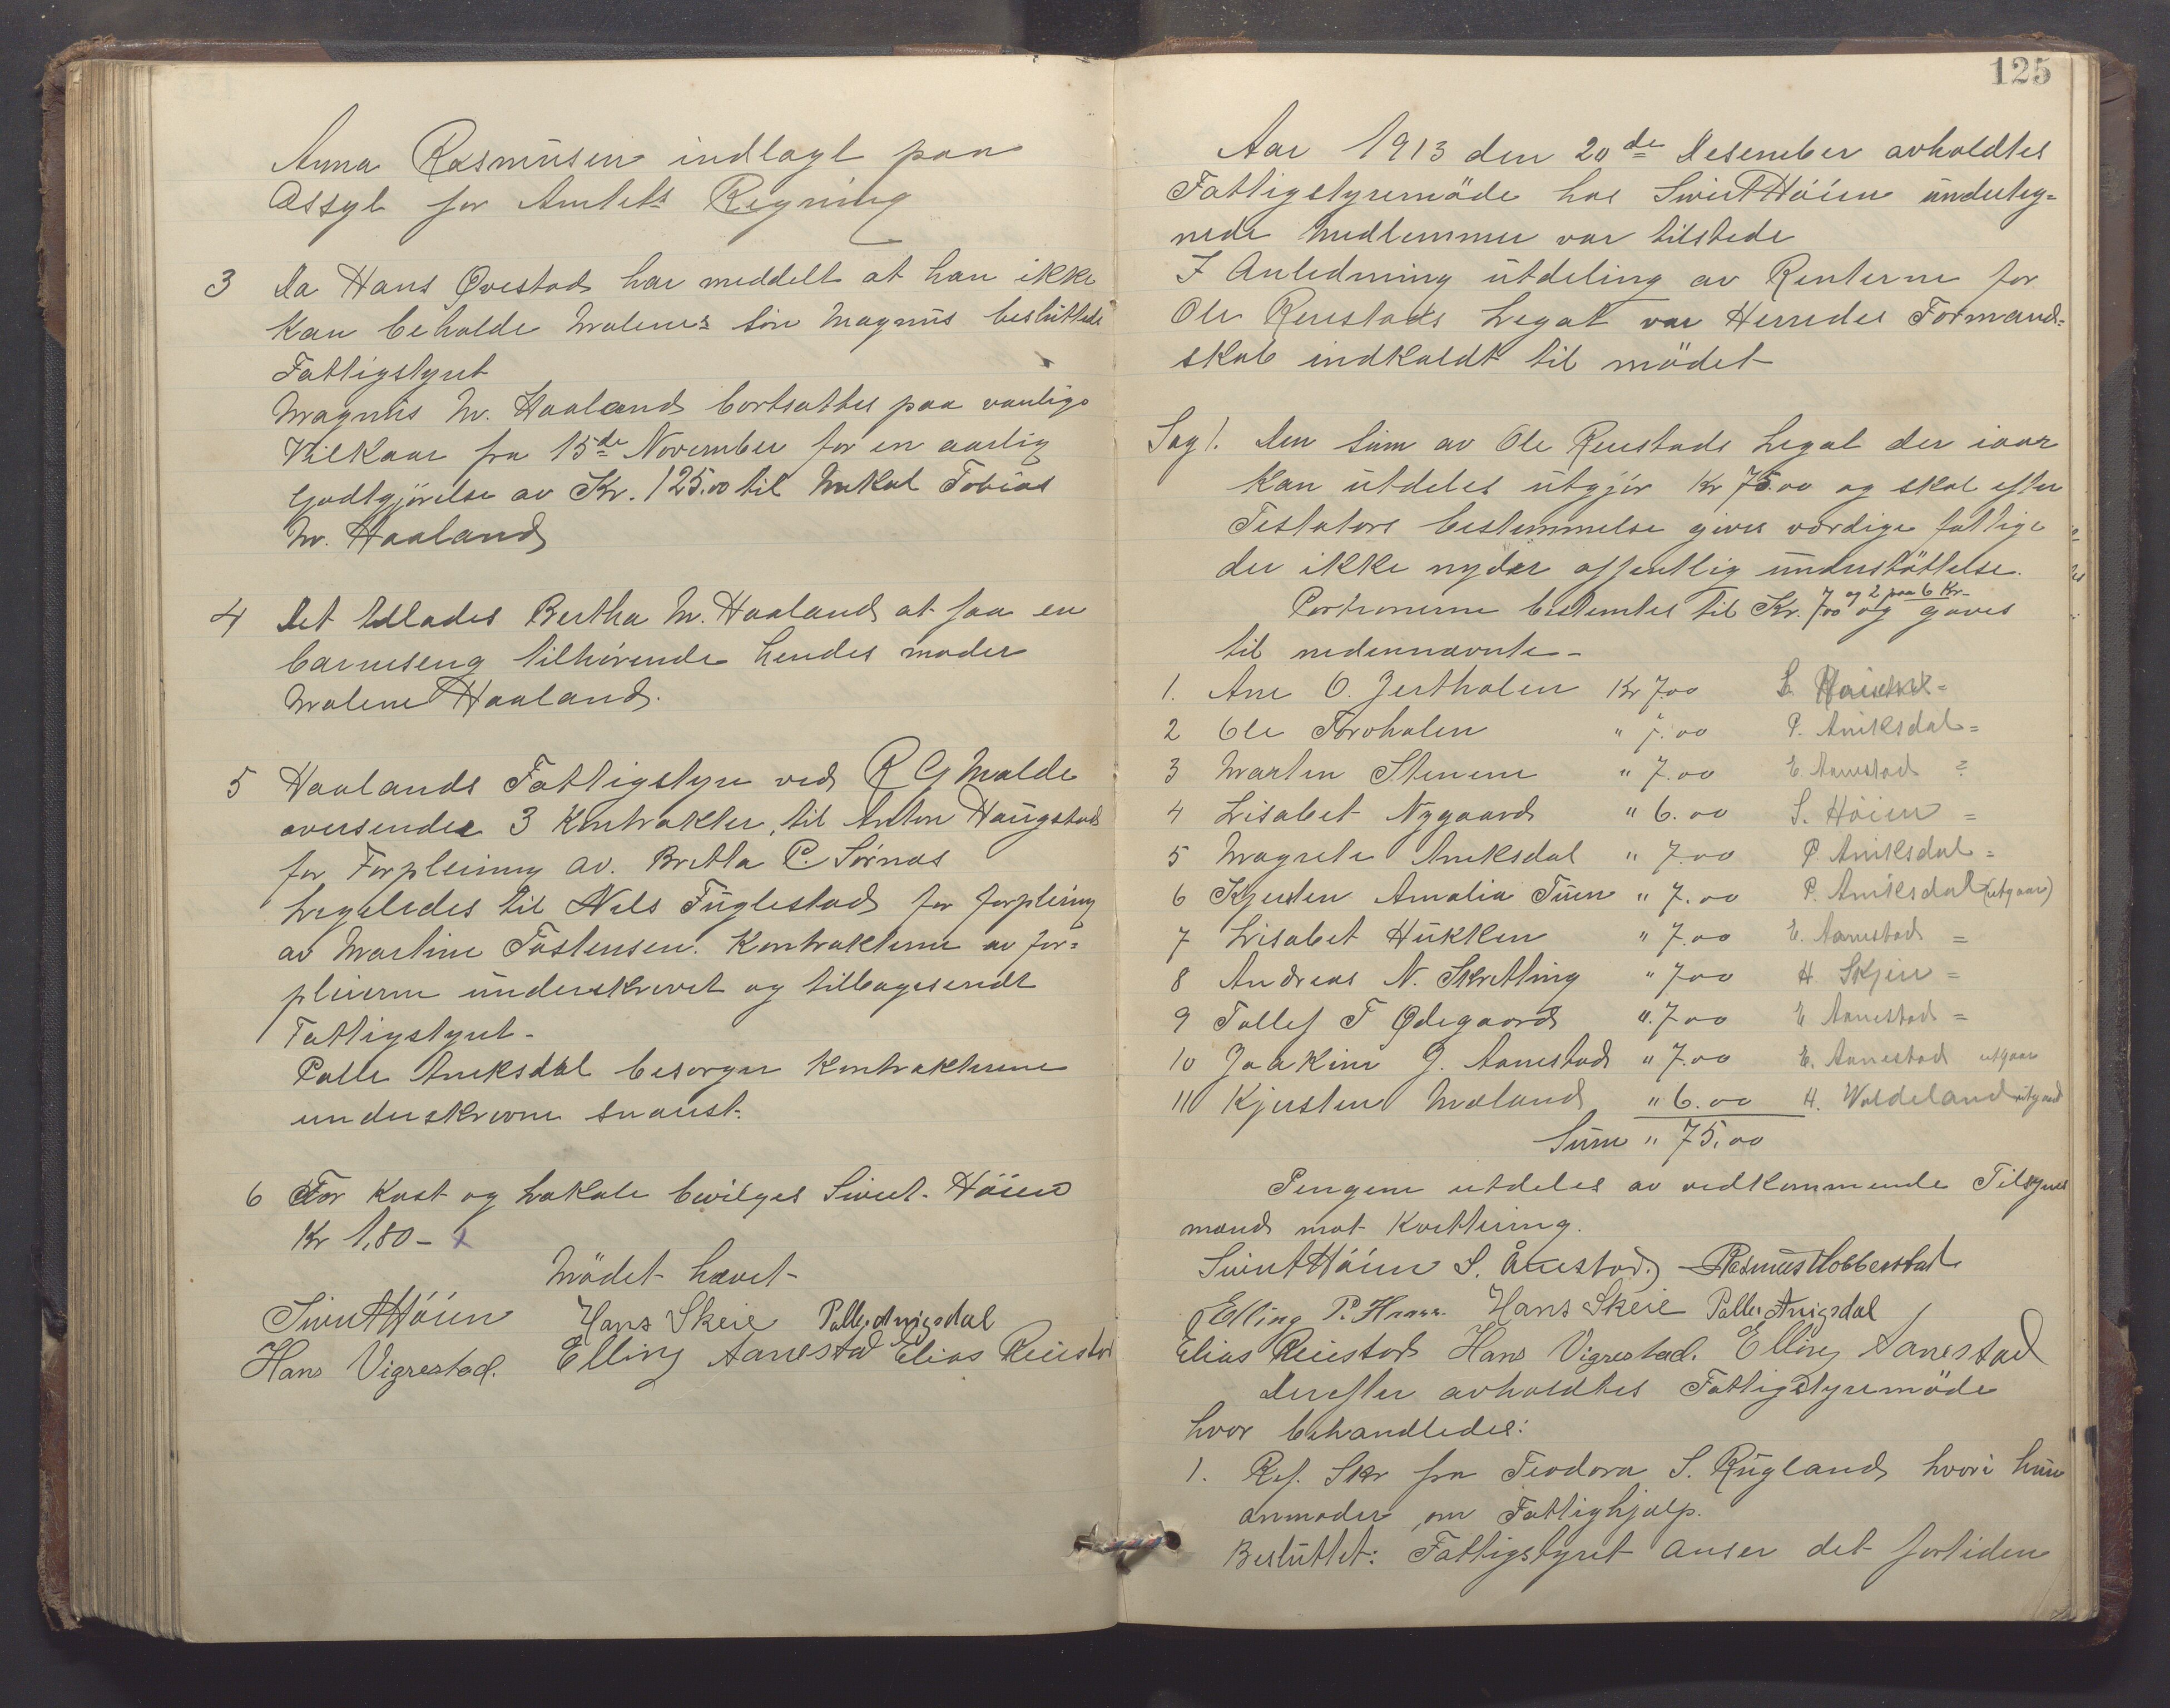 Anna Rasmusen indlagt paa
Assyl for Amtets Regning
3 Da Hans Qvestad har meddelt at han ikke
kan beholde Malenes sön Magnus besluttede
Fattigstyret
Magnus M. Haaland bortsattes paa vanlige
Vilkaar fra 15de November for en aarlig
Godtgjörelse av Kr. 125.00 til Mikal Tobias
M. Haaland
4 Det tillades Bertha M. Haaland at faa en
barneseng tilhörende hendes moder
Malene Haaland.
5 Haalands Fattigstyre ved R G Malde
oversender 3 Kontrakter, til Anton Haugstad
for Forpleining av. Britta P. Sörnas
Ligeledes til Nils Fuglestad for forpleining
av Martine Tostensen. Kontrakterne av for=
pleierne underskrevet og tilbagesendt
Fattigstyret-
Palle Aniksdal besorger Kontrakterne
underskrevne snarest.
6 For Kost og Lokale bevilges Sivert Höien
Kr 1,80 - x
Mödet hævet-
Sivert Höien Hans Skeie Palle Anigsdal
Hans Vigrestad. Elling Aanestad Elias Reiestad
125
Aar 1913 den 20de Desember avholdtes
Fattigstyremöde hos Sivert Höien underteg=
nede Medlemmer var tilstede
I Anledning utdeling av Renterne for
Ole Reiestads Legat var Herredes Formand=
skab indkaldt til mödet
Sag 1. Den Sum av Ole Reiestads Legat der iaar
kan utdeles utgjör Kr 75.00 og skal efter
Testators bestemmelse gives værdige fattige
der ikke nyder offentlig understöttelse.
Portionerne bestemtes til Kr. 7.00 og 2 paa 6 Kr- og gaves
til nedennævnte-
1. Ane O. Jertholen Kr 7.00
2 Ole Torvholen " 7.00 P. Aniksdal =
3 Martin Stenene " 7.00 E. Aanestad =
4 Lisabet Nygaard " 6.00 S. Höien =
5 Magrete Aniksdal " 7.00 P. Aniksdal =
6 Kjersten Amalia Tuen " 7.00 P. Aniksdal (utgaar)
7 Lisabet Hukken " 7.00 E. Aanestad =
8 Andreas N. Skretting " 7.00 H Skjeie =
9 Tollef T Ödegaard " 7.00 E Aanestad =
10 Joakim J. Aanestad " 7.00 E. Aanestad utgaar
11 Kjersten Mæland " 6.00 H. Voldeland utgaar
Sum " 75.00
Pengene utdeles av vedkommende Tilsyns
mænd mot Kvittering.
Sivert Höien S. Ånestad. Rasmus Hobberstad
Elling P. Hans Skeie Palle Anigsdal
Elias Reiestad Hans Vigrestad. Elling Aanestad
Derefter avholdtes Fattigstyremöde
hvor behandledes:
1. Ref. Skr fra Teodora S. Rugland hvori hun
anmoder om Fattighjælp.
Besluttet: Fattigstyret anser det fortiden